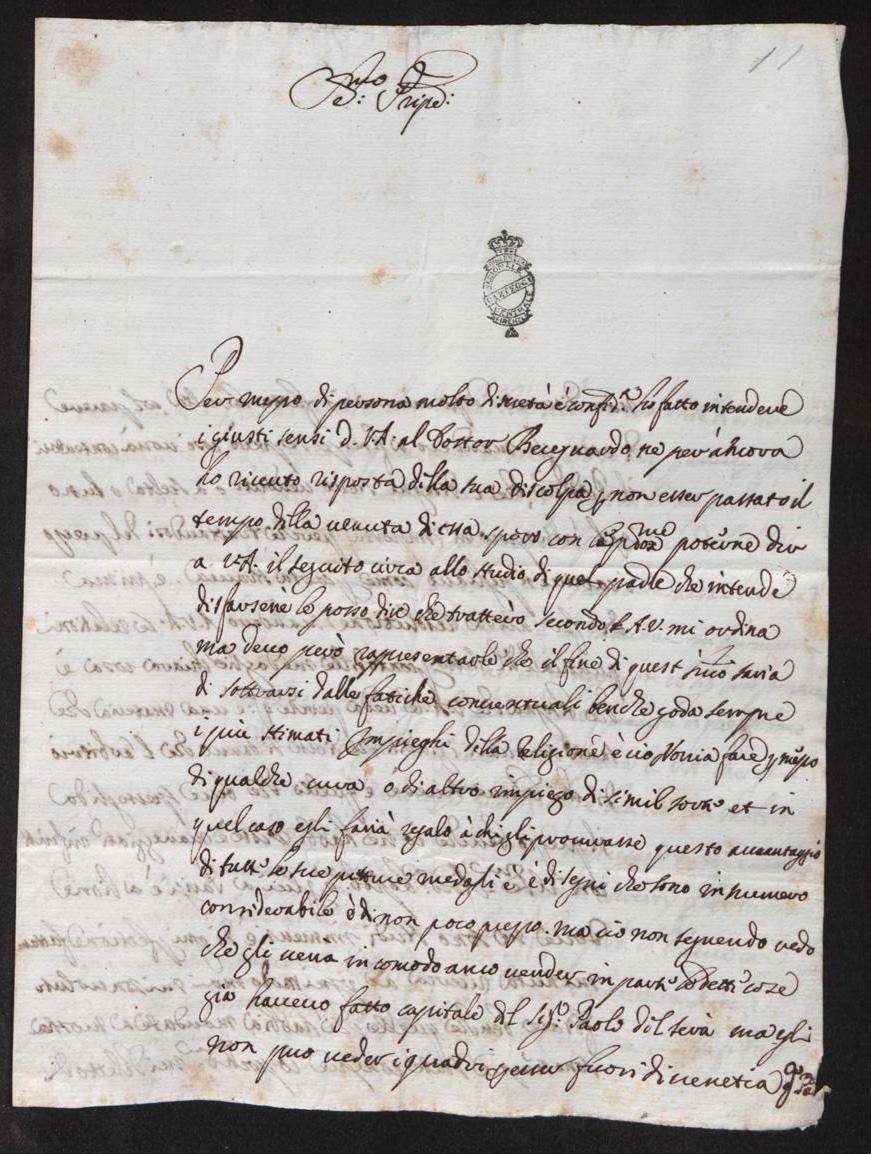 11
Ser:mo Pnpe:
BIBLIOTECA NAZIONALE CENTRALE FIRENZE
CARTEGGI
Per mezzo di persona molto discreta è confid:te ho fatto intendere
i giusti sensi d. V.A. al Dottor Bereguardo, ne per anchora
ho riceuto risposta della sua discolpa, non esser passato il
tempo della uenuta di essa. spero con poterne dir
a V.A. il seguito circa allo studio di quel padre che intende
disfarsene le posso dire che tratterò secondo A.V. mi ordina
ma deuo però rappresentarle che il fine di quest saria
di sottrarsi dalle fatiche conuentuali benche goda sempre
i più stimati Impieghi della religione è cio Vorria fare p mezo
di qualche cura o di altro impiego di simil sorte et in
quel caso egli faria regalo à chi gli procurasse questo auantaggio
di tutte le sue pitture medaglie è disegni che sono in numero
considerabile è di non poco prezzo. ma cio non seguendo uedo
che gli uerria incomodo anco uender in parte detti coze
gia haueuo fatto capitale del Sig:r Paolo del Sera ma egli
non puo ueder i quadri esser fuori di uenetia